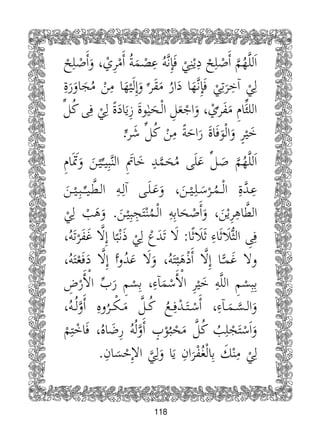 اَللّٰهُمَّ أَصْلِحْ لِيْ دِيْنِيْ فَإِنَّهُ عِصْمَةُ أَمْرِيْ، وَأَصْلِحْ
لِيْ آخِرَتِيْ فَإِنَّهَا دَارُ مَقَرِّيْ وَإِلَيْهَا مِنْ مُجَاوَرَةِ
اللِّئَامِ مَفَرِّيْ، وَاجْعَلِ الْحَيَٰوةَ زِيَادَةً لِيْ فِى كُلِّ
خَيْرٍ وَالْوَفَاةَ رَاحَةً مِنْ كُلِّ شَرٍّ
اَللّٰهُمَّ صَلِّ عَلَى مُحَمَّدٍ خَاتَمِ النَّبِيِّيْنَ وَتَمَامِ
عِدَّةِ الْمُرْسَلِيْنَ، وَعَلَى آلِهِ الطَّيِّبِيْنَ
الطَّاهِرِيْنَ، وَأَصْحَابِهِ الْمُنْتَجَبِيْنَ. وَهَبْ لِيْ
فِى الثُّلَاثَاءِ ثَلَاثًا: لَا تَدَعْ لِيْ ذَنْبًا إِلَّا غَفَرْتَهُ،
ولا غَمًّا إِلَّا أَذْهَبْتَهُ، وَلَا عَدُوًّا إِلَّا دَفَعْتَهُ
بِبِسمِ اللَّهِ خَيْرِ الْأَسْمَآءِ، بِسْمِ رَبِّ الْأَرْضِ
وَالسَّمَآءِ، أَسْتَدْفِعُ كُلَّ مَكْرُوهٍ أَوَّلُهُ
وَأَسْتَجْلِبُ كُلَّ مَحْبُوْبٍ أَوَّلُهُ رِضَاهُ، فَاخْتِمْ
لِيْ مِنْكَ بِالْغُفْرَانِ يَا وَلِيَّ الإِحْسَانِ.
118